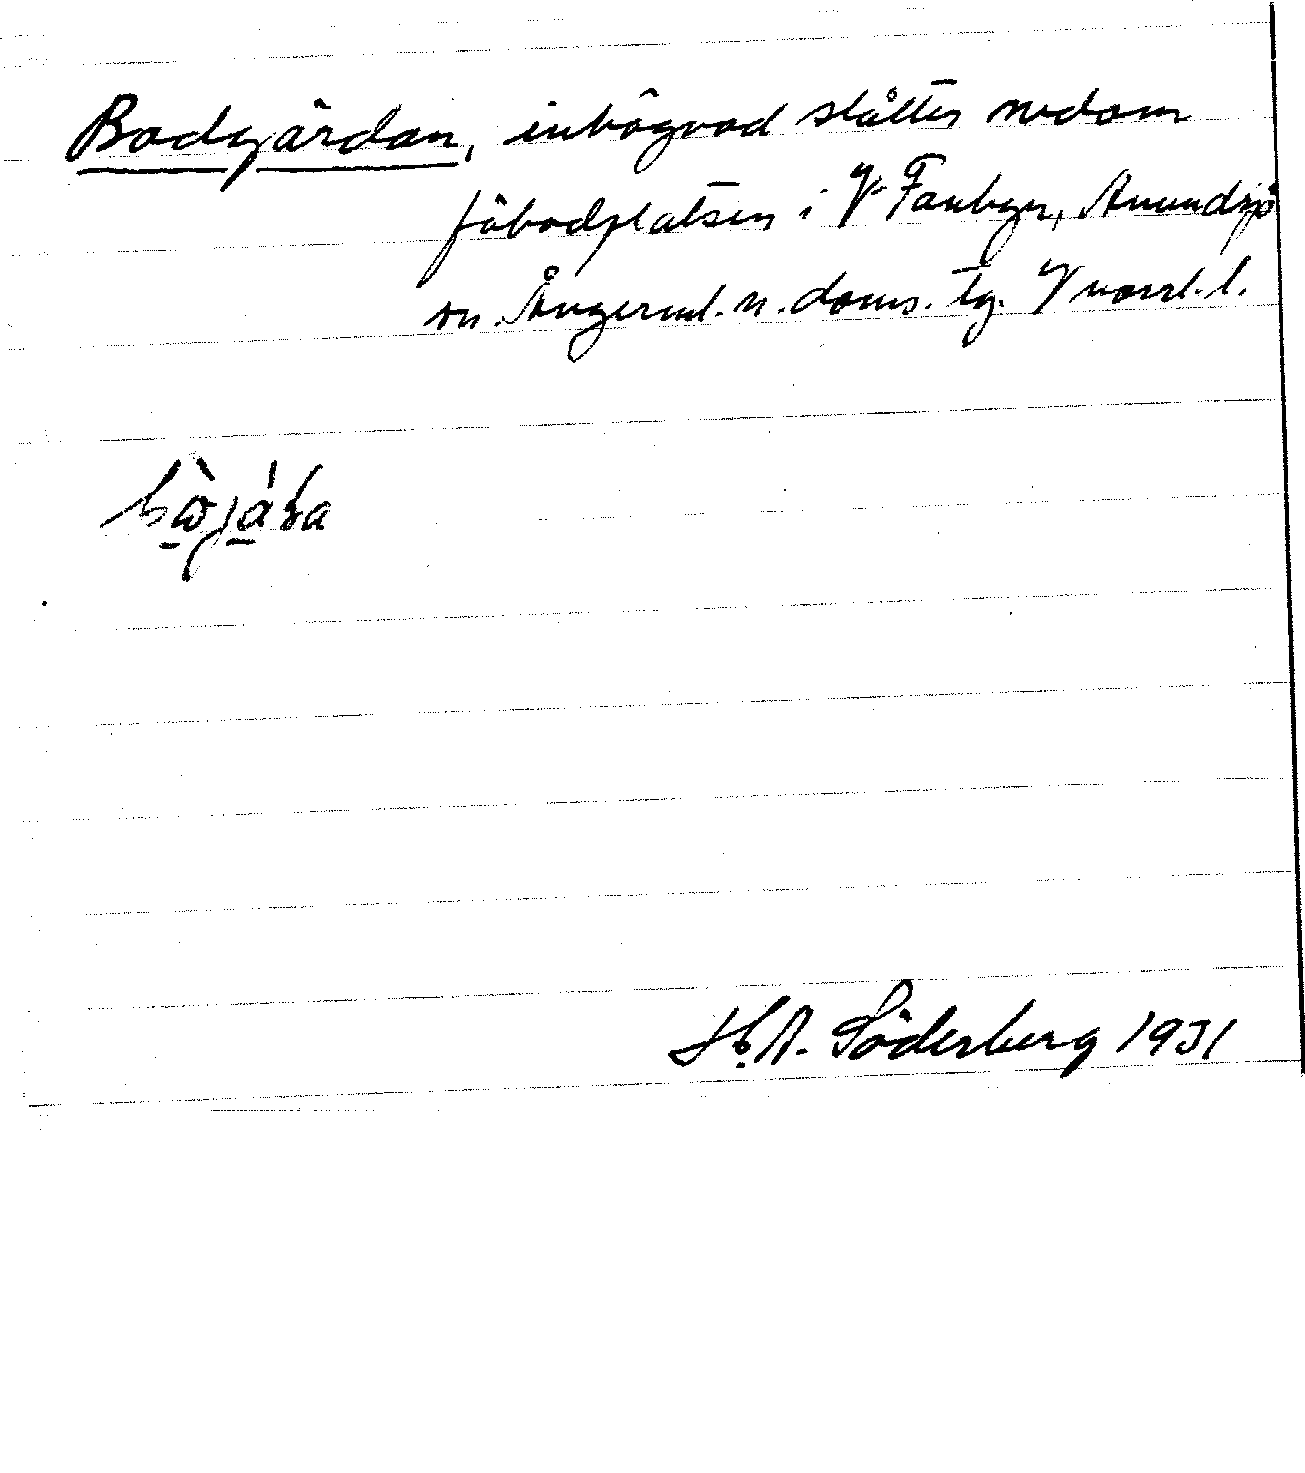 Bodgärdan, inhägnad slåtter nedom
fäbodplatsen i V Fanbyn, Anundsjö
sn. Ångerml. n. doms. tg. Y norrl. l.
H. A. Söderberg 1931